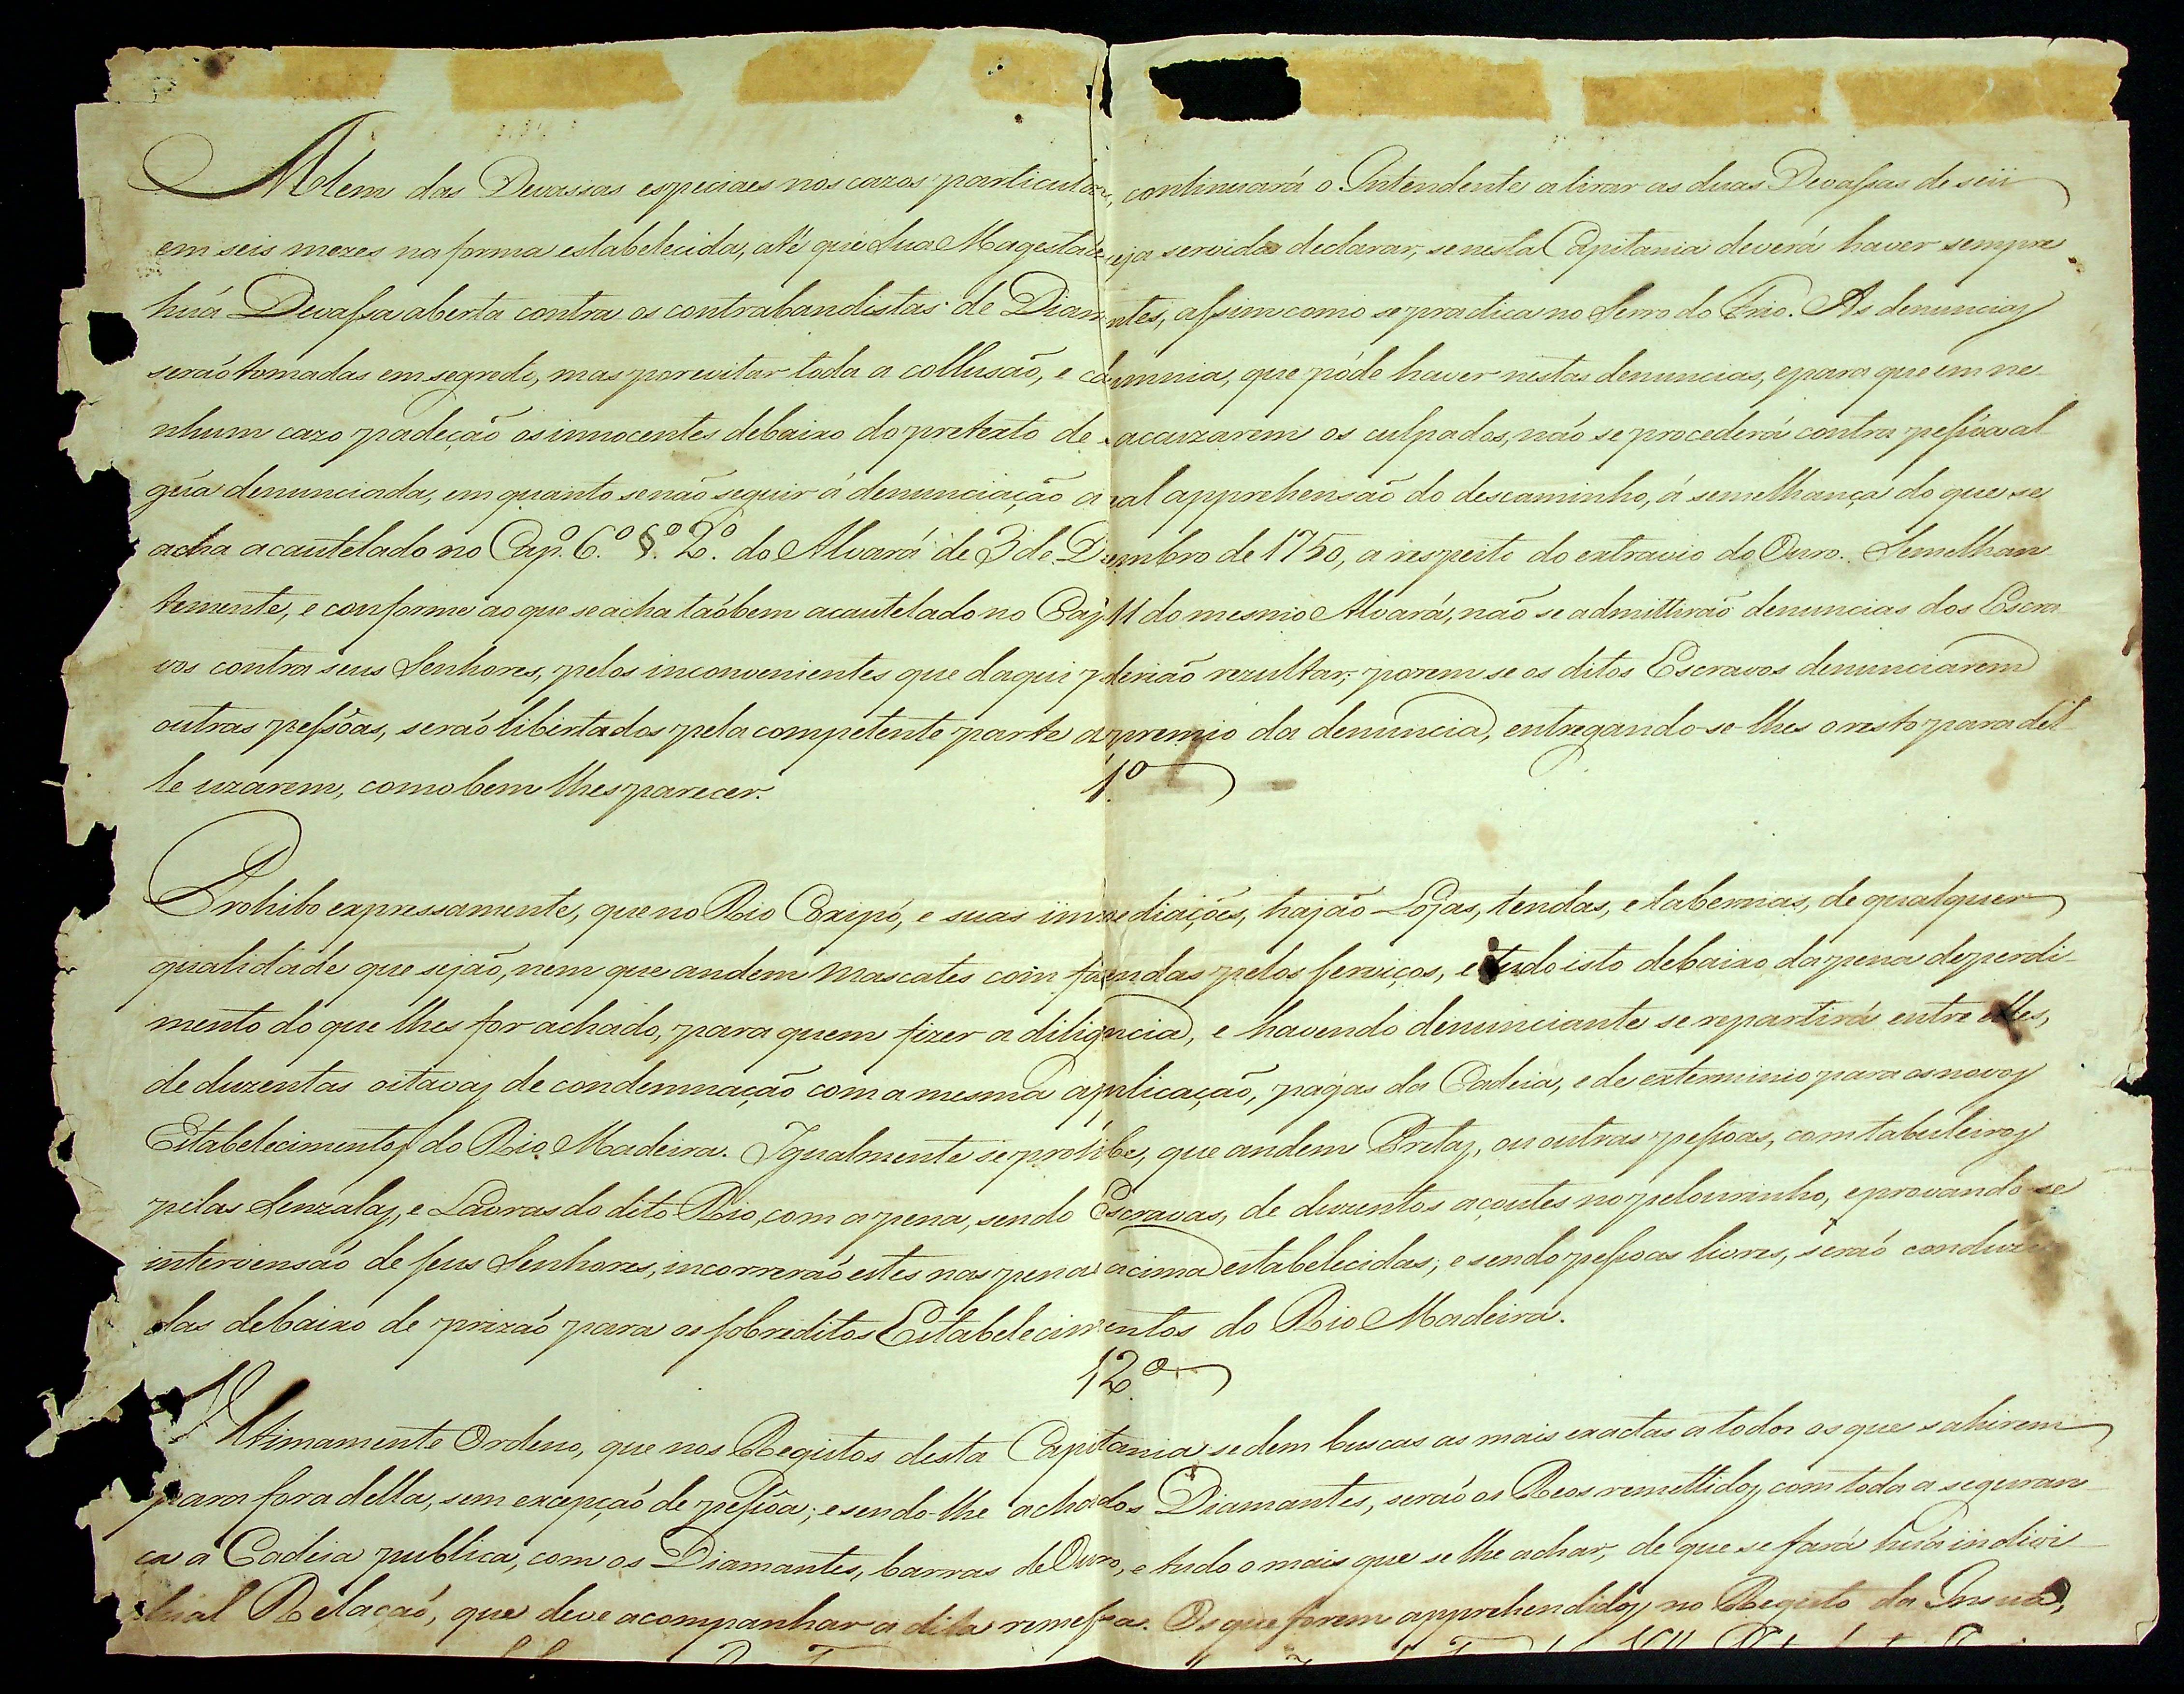 Alem das Devassas especiaes nos cazos particulares, continuará o Intendente a tirar as duas Devassas de seis
em seis mezes na forma estabelecida, até que Sua Magestade seja servida declarar, se nesta Capitania deverá haver sempre
huã Devassa aberta contra os contrabandistas de Diamantes, assim como se practica no Serro do Frio. As denuncias
seraõ tomadas em segredo, mas por evitar toda a collusaõ, e calumnia, que póde haver nestas denuncias, e para que em ne-
nhum cazo padeçaõ os innocentes debaixo do pretexto de acauzarem os culpados, naõ se procederá contra pessoa al-
guã denunciada, em quanto se naõ seguir á denunciaçaõ a real apprehensaõ do descaminho, á semelhança do que se
acha acautelado no Cap.º 6.º §.º 2.º do Alvará de 3 de Dezembro de 1750, a respeito do extravio do Ouro. Semelhan
temente, e conforme ao que se acha taõbem acautelado no Cap. 11 do mesmo Alvará, naõ se admittiraõ denuncias dos Escra
vos contra seus Senhores, pelos inconvenientes que daqui poderiaõ rezultar; porem se os ditos Escravos denunciarem
outras pessôas, seraõ libertados pela competente parte do premio da denuncia, entregando-se-lhes o resto para del-
le uzarem, como bem lhes parecer.
Prohibo expressamente, que no Rio Coxipó, e suas immediaçoẽs, hajaõ Lojas, tendas, e tabernas, de qualquer
qualidade que sejaõ, nem que andem Mascates com fazendas pelos serviços, e tudo isto debaixo da pena de perdi-
mento do que lhes for achado, para quem fizer a diligencia, e havendo denunciante se repartirá entre elles,
de duzentas oitavas de condemnaçaõ com a mesma applicaçaõ, pagas da Cadeia, e de exterminio para os novos
Estabelecimentos do Rio Madeira. Igualmente se prohibe, que andem Pretas, ou outras pessoas, com tabuleiros
pelas Senzalas, e Lavras do dito Rio, com a pena, sendo Escravas, de duzentos açoutes no pelourinho, e provando-se
intervensaõ de seus Senhores, incorreraõ estes nas penas acima estabelecidas; e sendo pessoas livres, seraõ conduzi
das debaixo de prizaõ para os sobreditos Estabelecimentos do Rio Madeira.
12.º
Ultimamente Ordeno, que nos Registos desta Capitania se dem buscas as mais exactas a todos os que sahirem
para fora della, sem excepçaõ de pessôa; e sendo-lhe achados Diamantes, seraõ os Reos remettidos com toda a seguran
ça á Cadeia publica, com os Diamantes, barras de Ouro, e tudo o mais que se lhe achar, de que se fará huã indivi-
dual Relaçaõ, que deve acompanhar a dita remessa. Os que forem apprehendidos no Registo da Insua,